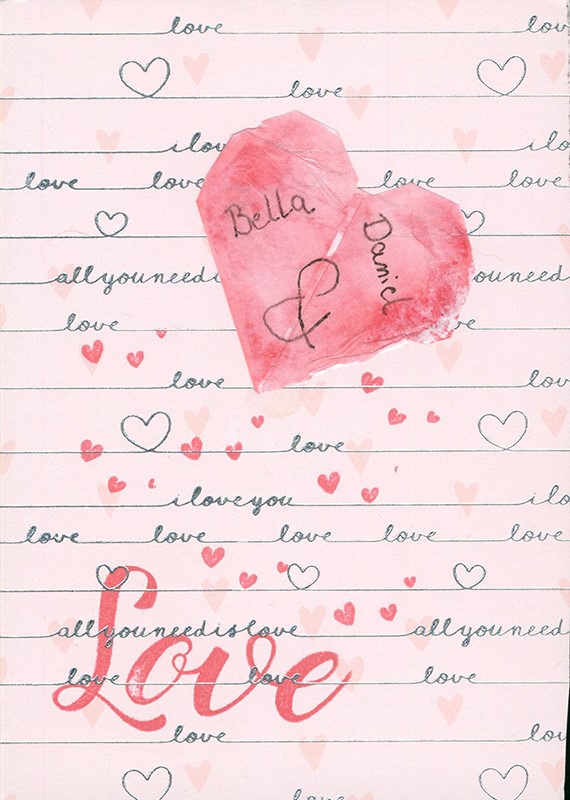 love love
love
i lov i lo
love love love love
Bella
Daniel
&
allyouneedi ouneed
love
love lov
love
iloveyou ilo
love love love love love
allyouneedislove allyouneed
Love
love love love
love lov
love